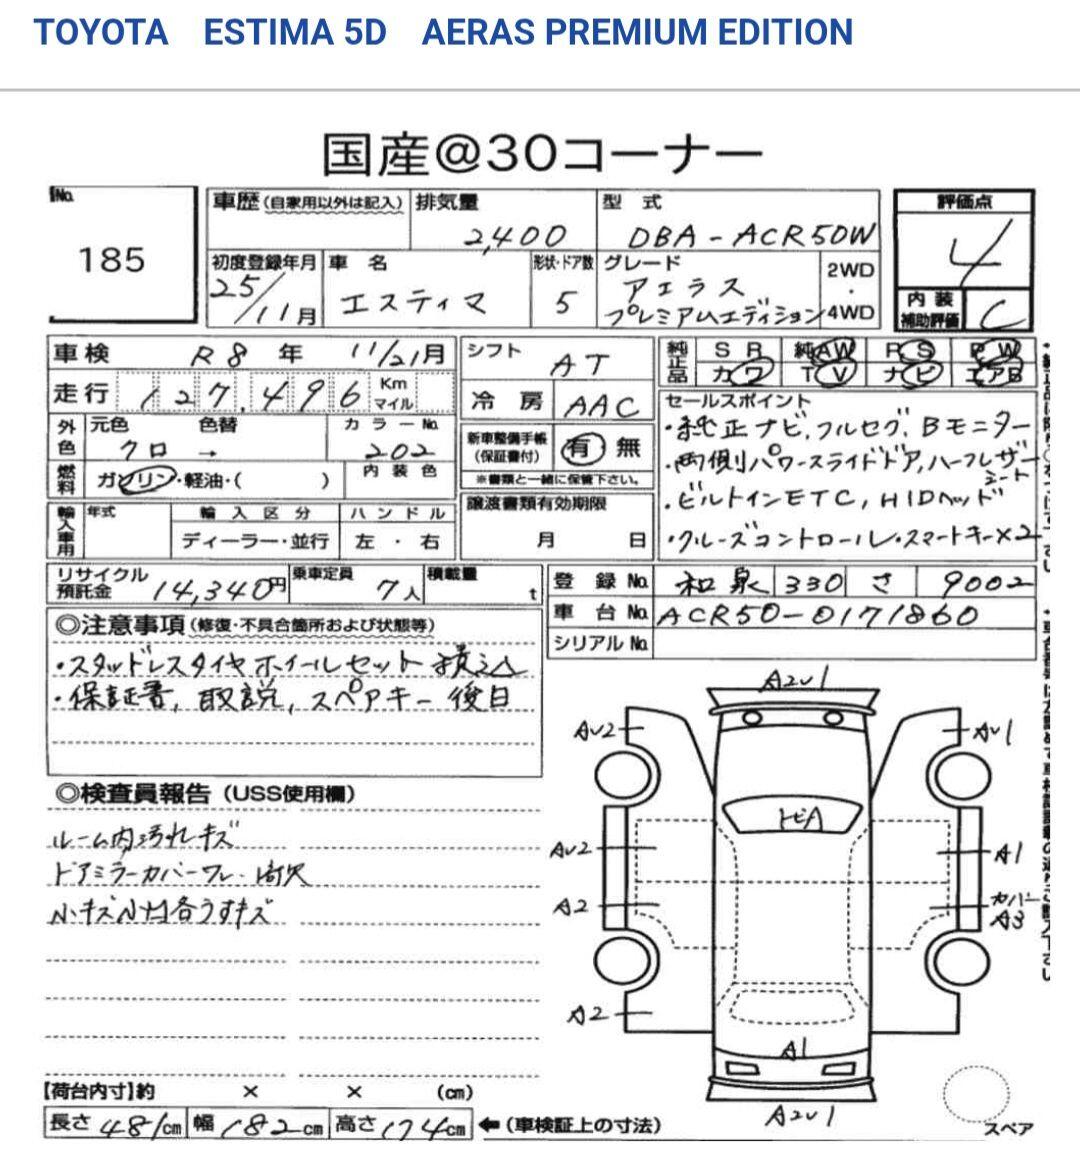 TOYOTA ESTIMA 5D AERAS PREMIUM EDITION
国産@30コーナー
No.
185
車歴(自家用以外は記入)
排気量
2,400
型式
DBA-ACR50W
評価点
4
初度登録年月
25/11月
車名
エスティマ
形状・ドア数
5
グレード
アエラス
プレミアムエディション
2WD
・
4WD
内装
補助評価
C
車検 R8年 11/21月
シフト AT
純正品
SR 純AW PS PW
カワ TV ナビ エアB
走行 127,496 Km マイル
冷房 AAC
セールスポイント
・純正ナビ,フルセグ,Bモニター
・両側パワースライドドア,ハーフレザーシート
・ビルトインETC,HIDヘッド
・クルーズコントロール・スマートキー×2
外色 元色 色替 カラーNo.
クロ → 202
新車整備手帳
(保証書付)
有 無
※書類と一緒に保管下さい。
燃料 ガソリン・軽油・( )
内装色
譲渡書類有効期限
月 日
輸入車用 年式 輸入区分 ハンドル
ディーラー・並行 左・右
リサイクル預託金 14,340円
乗車定員 7人
積載量 t
登録No. 和泉 330 さ 9002
車台No. ACR50-0171860
シリアルNo.
◎注意事項(修復・不具合箇所および状態等)
・スタッドレスタイヤホイールセット積込
・保証書,取説,スペアキー後日
◎検査員報告(USS使用欄)
ルーム内汚れキズ
ドアミラーカバーワレ・高欠
小キズ小凹各うすキズ
A2U1
AU2
AU1
トビA
AU2
A1
A2
カバー
A3
A2
A1
A2U1
スペア
【荷台内寸】約 × × (cm)
長さ481cm 幅182cm 高さ174cm ←(車検証上の寸法)